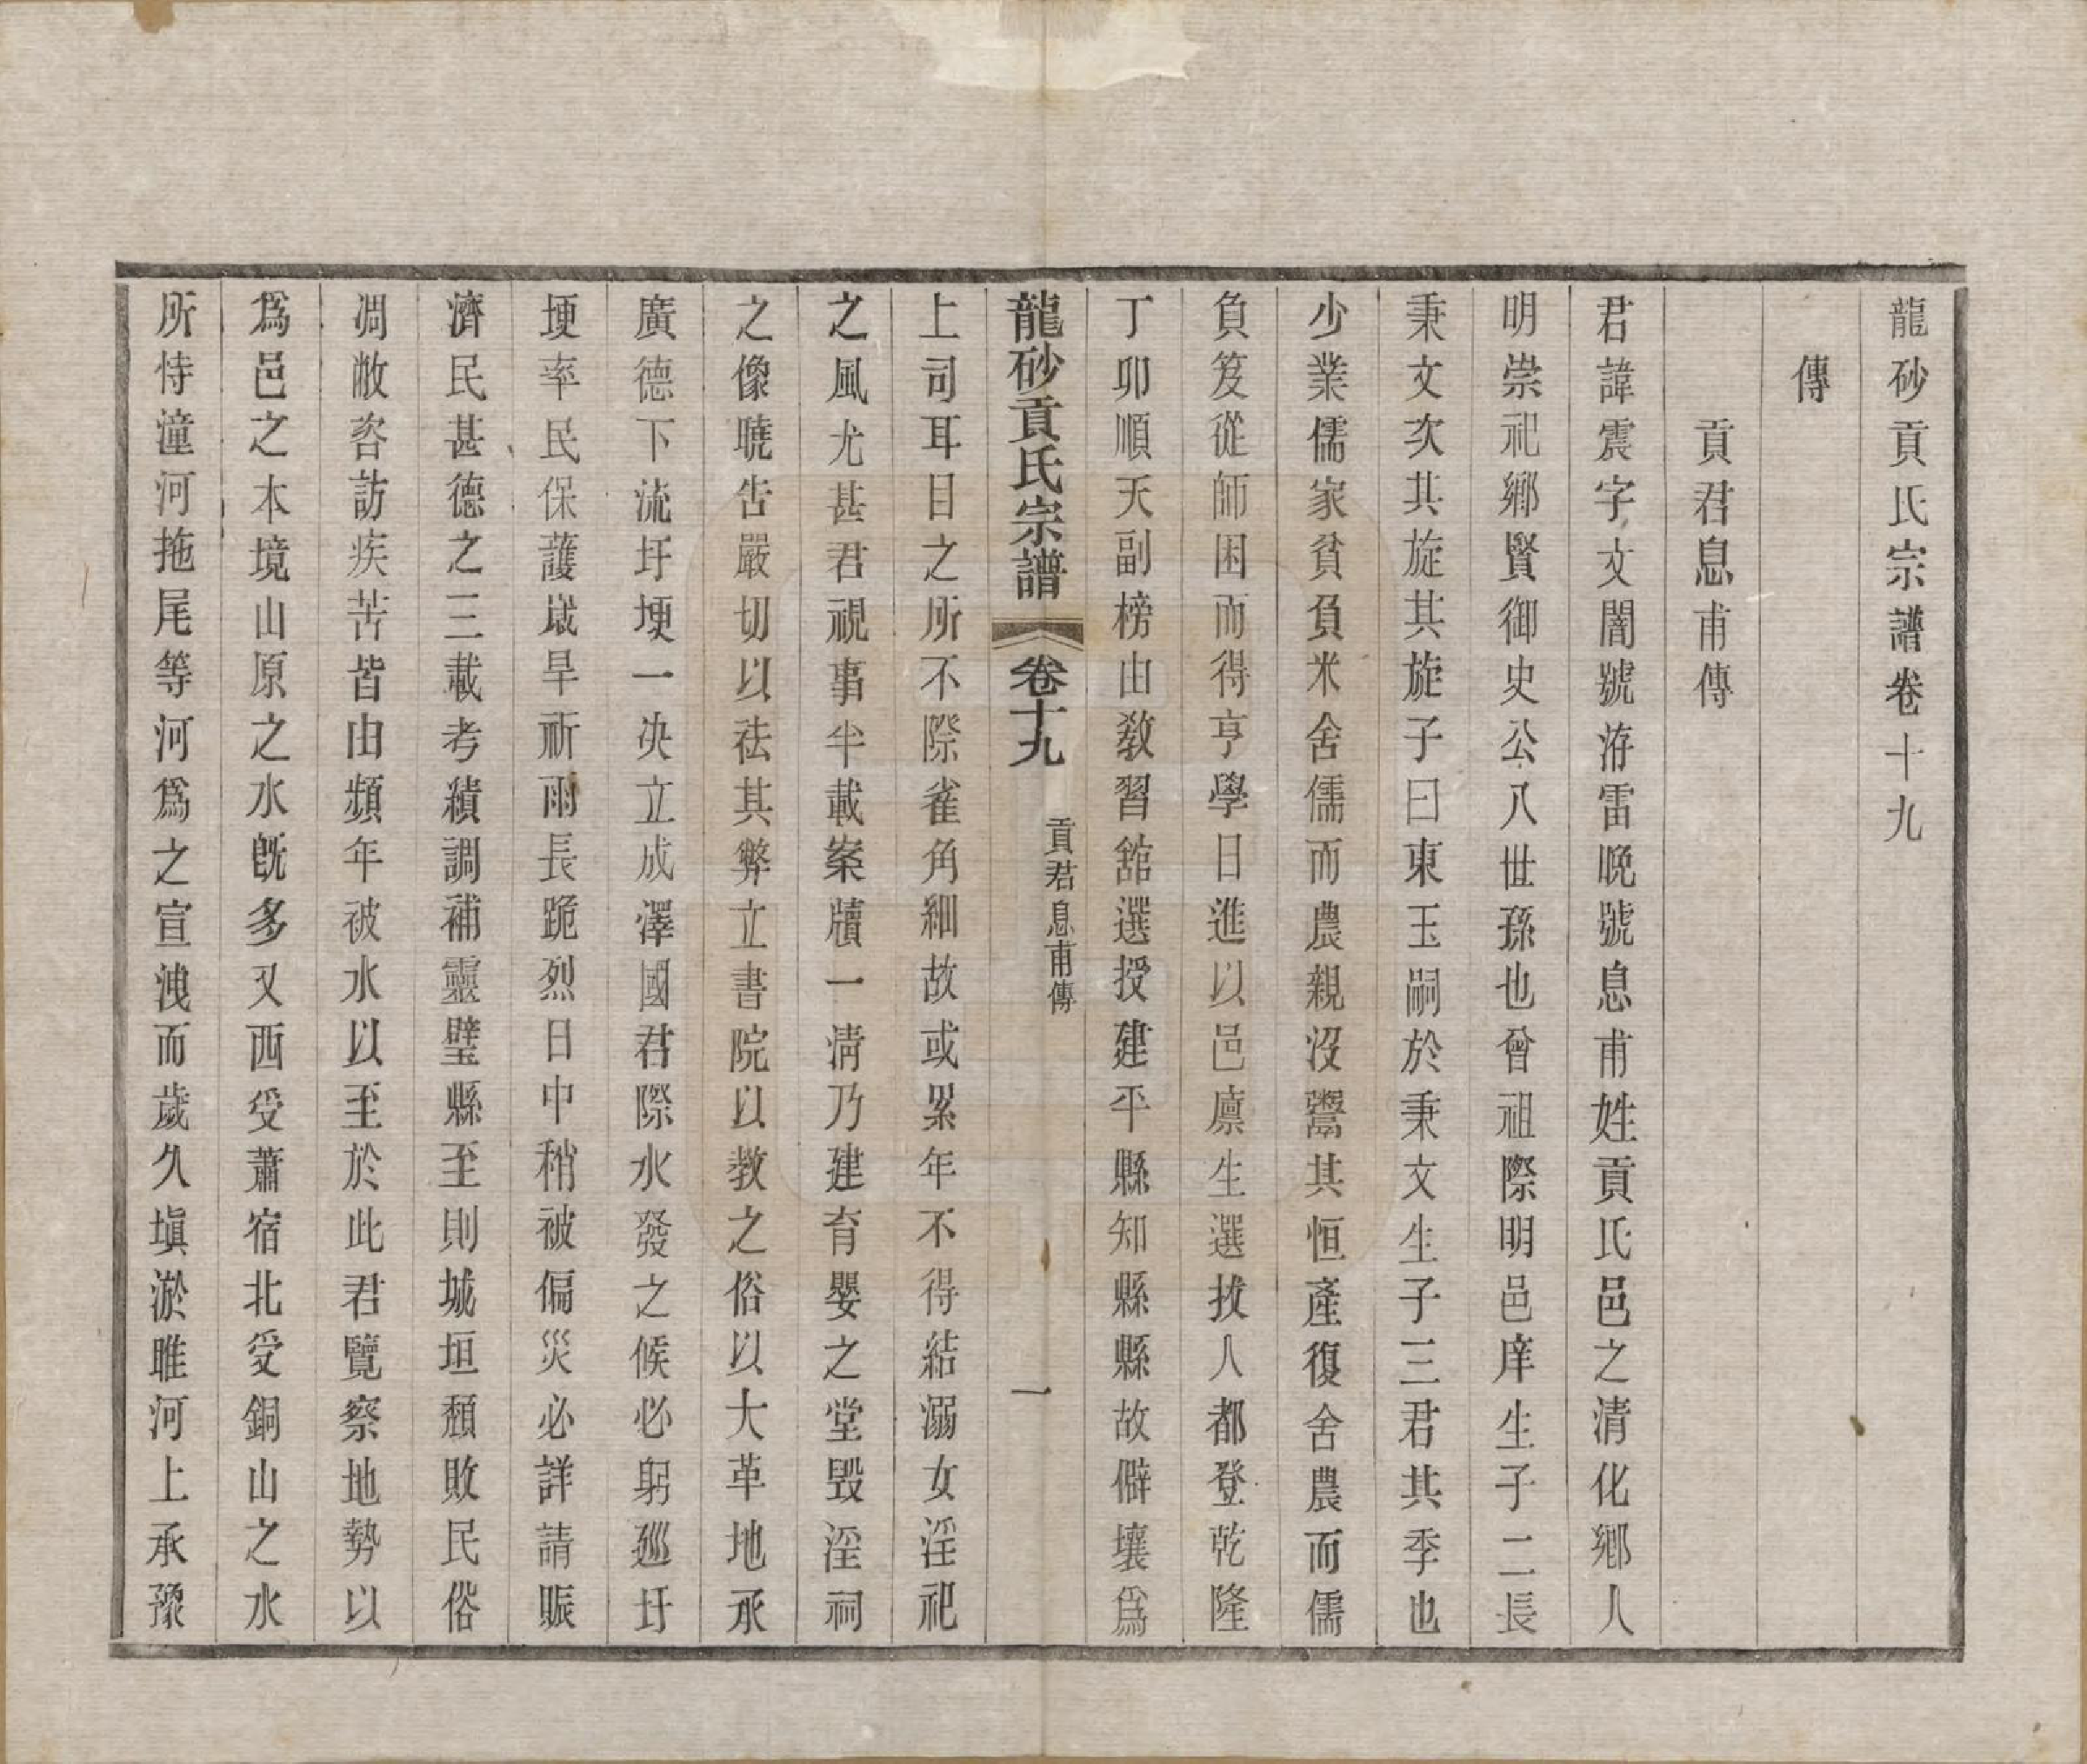 龍砂貢氏宗譜卷十九
傳
貢君息甫傳
君諱震字文闇號洊雷晚號息甫姓貢氏邑之清化鄉人
明崇祀鄉賢御史公八世孫也曾祖際明邑庠生子二長
秉文次其旋其旋子曰東玉嗣於秉文生子三君其季也
少業儒家貧負米舍儒而農親沒鬻其恒產復舍農而儒
負笈從師困而得亨學日進以邑廩生選拔人都登乾隆
丁卯順天副榜由教習舘選授建平縣知縣縣故僻壤為
龍砂貢氏宗譜 卷十九 貢君息甫傳 一
上司耳目之所不際雀角細故或累年不得結溺女淫祀
之風尤甚君視事半載案牘一清乃建育嬰之堂毀淫祠
之像曉告嚴切以祛其弊立書院以教之俗以大革地承
廣德下流圩埂一决立成澤國君際水發之候必躬廵圩
埂率民保護嵗旱祈雨長跪烈日中稍被偏災必詳請賑
濟民甚德之三載考績調補靈璧縣至則城垣頹敗民俗
凋敝咨訪疾苦皆由頻年被水以至於此君覽察地勢以
爲邑之本境山原之水旣多又西受蕭宿北受銅山之水
所恃潼河拖尾等河爲之宣洩而歲久塡淤睢河上承豫